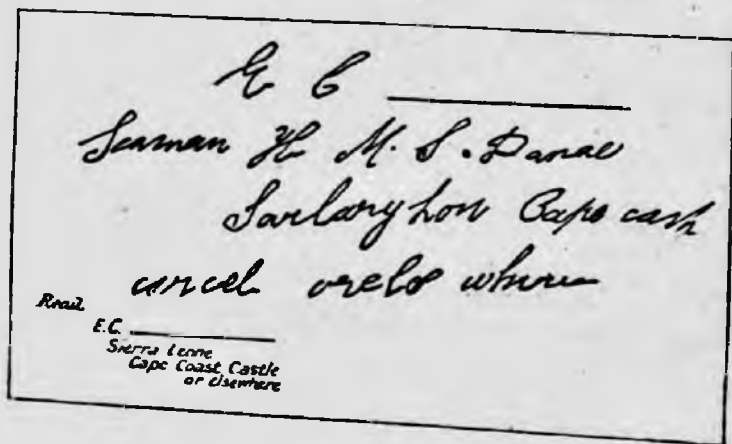 E C
Seaman H. M. S. Danae
Sarlaryhon Cape cash
uncel orelso where
Read
E.C.
Sierra Leone
Cape Coast Castle
or elsewhere